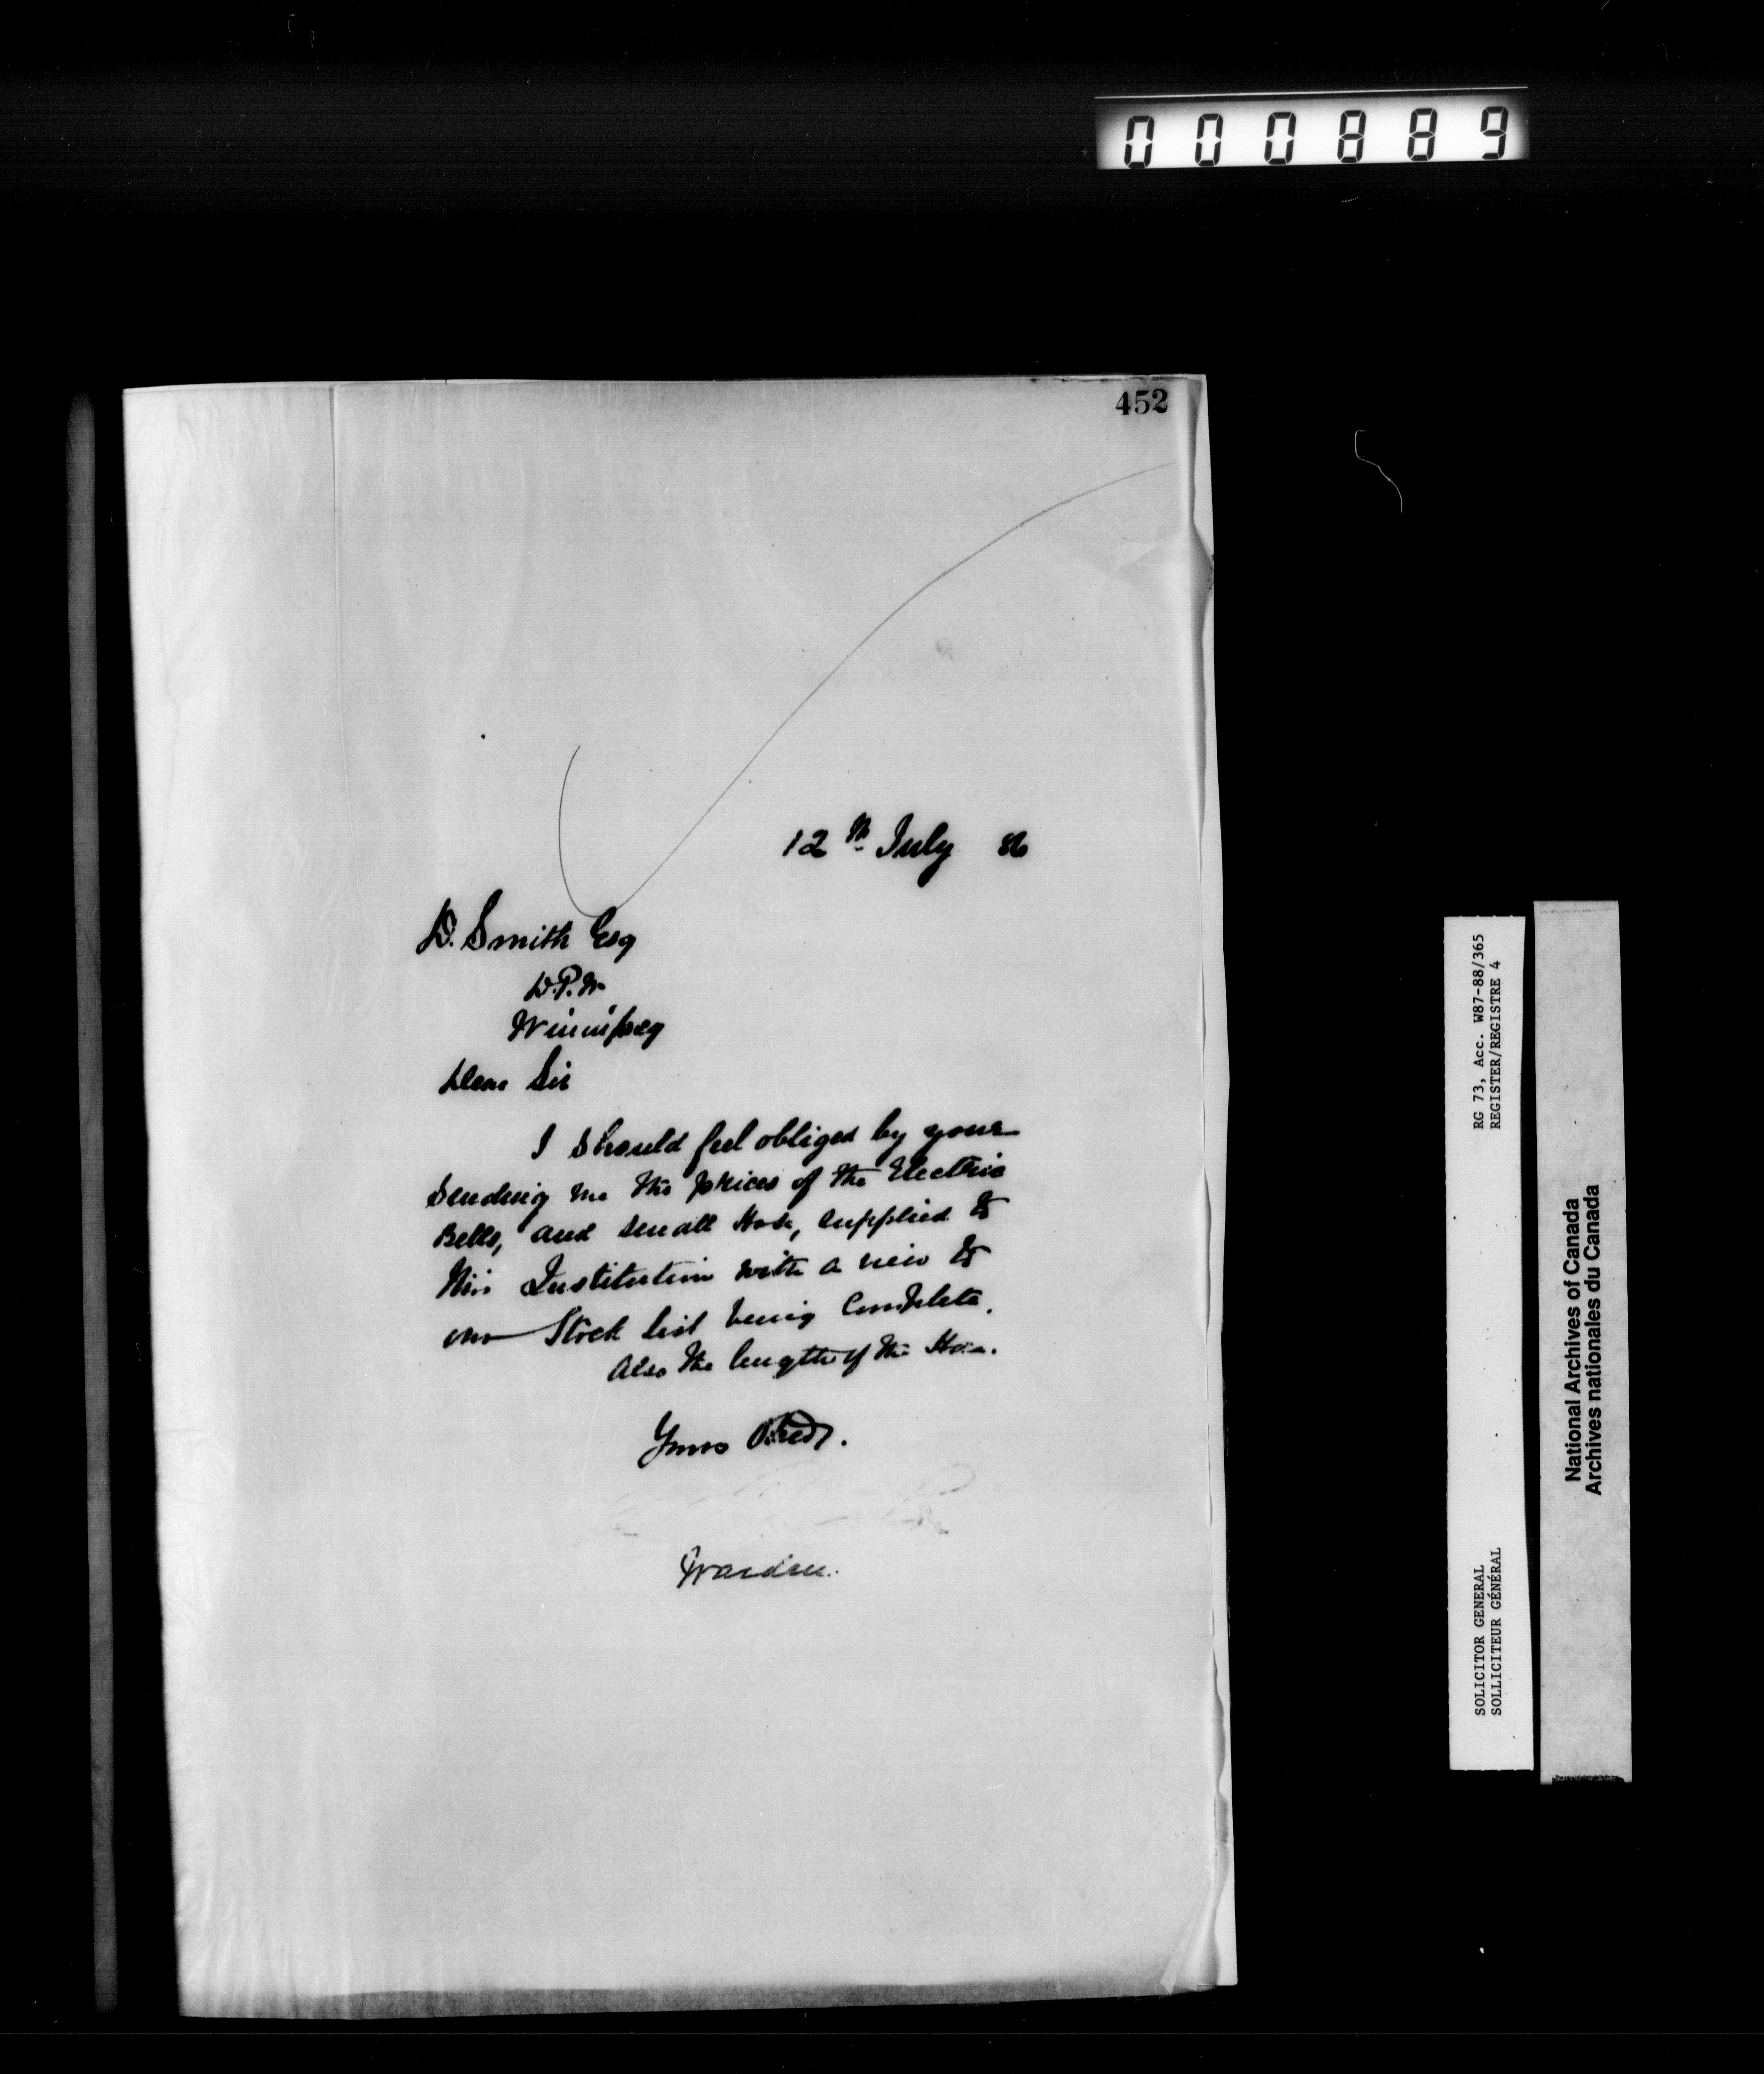 000889
452
12th July 86
D. Smith Esq
D.P.W
Winnipeg
Dear Sir
I should feel obliged by your
sending me the prices of the Electric
Bells, and small Hose, supplied to
this Institution with a view to
our Stock list being Complete.
Also the length of the Hose.
Yours Obedt.
Warden.
RG 73, Acc. W87-88/365
REGISTER/REGISTRE 4
SOLICITOR GENERAL
SOLLICITEUR GÉNÉRAL
National Archives of Canada
Archives nationales du Canada